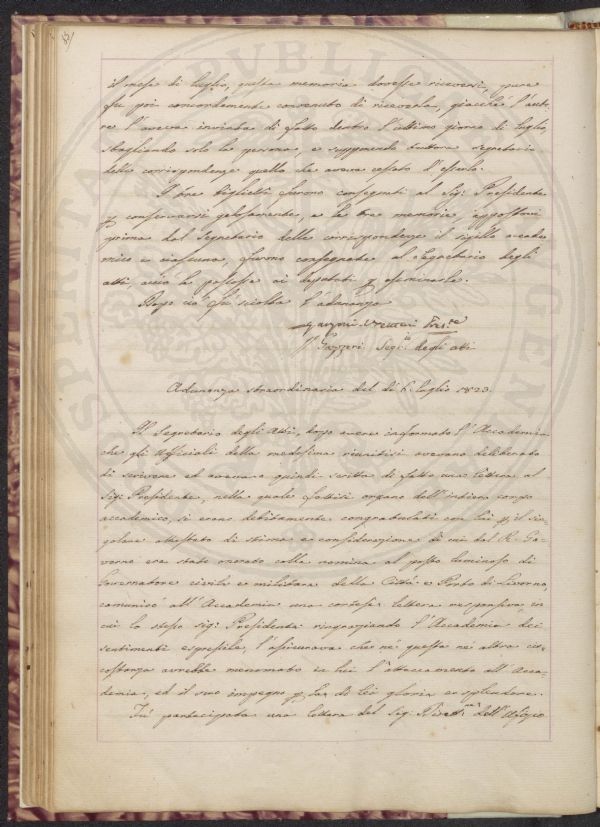 il mese di luglio, questa memoria dovesse riceversi, eppure
fu poi concordemente convenuto di riceverla, giacché l'auto
re l'aveva inviata di fatto dentro l'ultimo giorno di luglio,
sbagliando solo la persona, e supponendo tuttora segretario
delle corrispondenze quello che aveva cessato d'esserlo.
I tre biglietti furono consegnati al Sig: Presidente
p conservarsi gelosamente, e le tre memorie, appostovi
prima dal Segretario delle corrispondenze il sigillo accade
mico a ciascuna, furono consegnate al Segretario degli
atti, acciò le passasse ai deputati p esaminarle.
Dopo ciò fu sciolta l'adunanza
Garzoni Venturi Pres.te
Gazzeri Seg:rio degli atti
Adunanza straordinaria del dì 6. luglio 1823.
Il Segretario degli Atti, dopo avere informato l'Accademia
che gli Ufficiali della medesima riunitisi avevano deliberato
di scrivere ed avevano quindi scritta di fatto una lettera al
Sig: Presidente, nella quale fattisi organo dell'intiero corpo
accademico, si erano debitamente congratulati con lui p il sin=
golare attestato di stima e considerazione di cui dal R. Go=
verno era stato onorato colla nomina al posto luminoso di
Governatore civile e militare della Città e Porto di Livorno,
comunicò all'Accademia una cortese lettera responsiva, in
cui lo stesso sig: Presidente ringraziando l'Accademia dei
sentimenti espressile, l'assicurava che né questa né altra cir=
costanza avrebbe menomato in lui l'attaccamento all'Acca=
demia, ed il suo impegno p la di Lei gloria e splendore.
Fu partecipata una lettera del Sig: dell'Ufizio